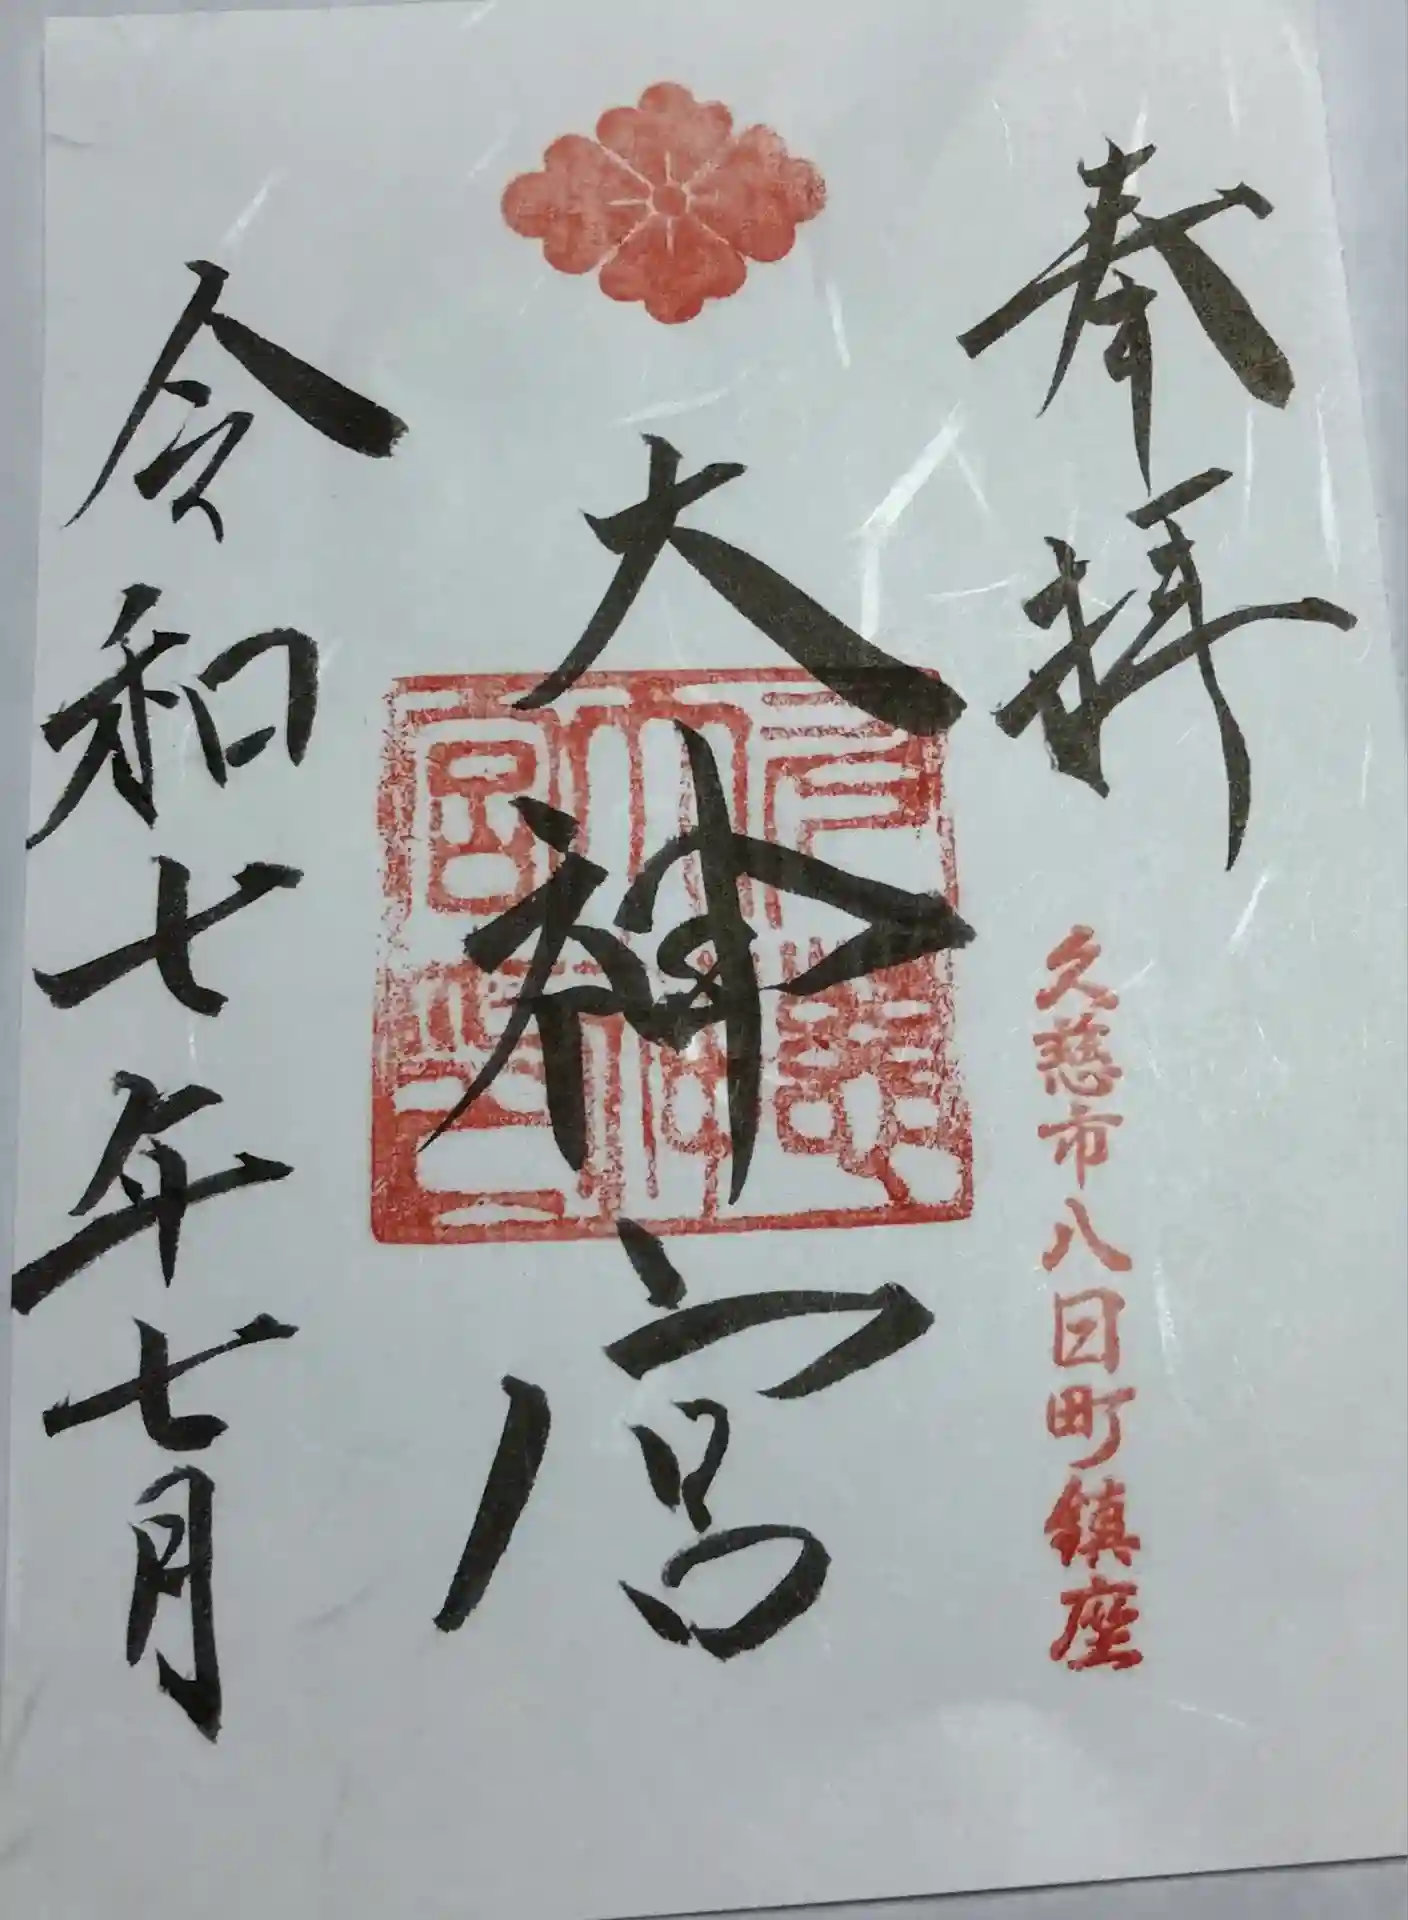 奉拝
久慈市八日町鎮座
大神宮
令和七年七月